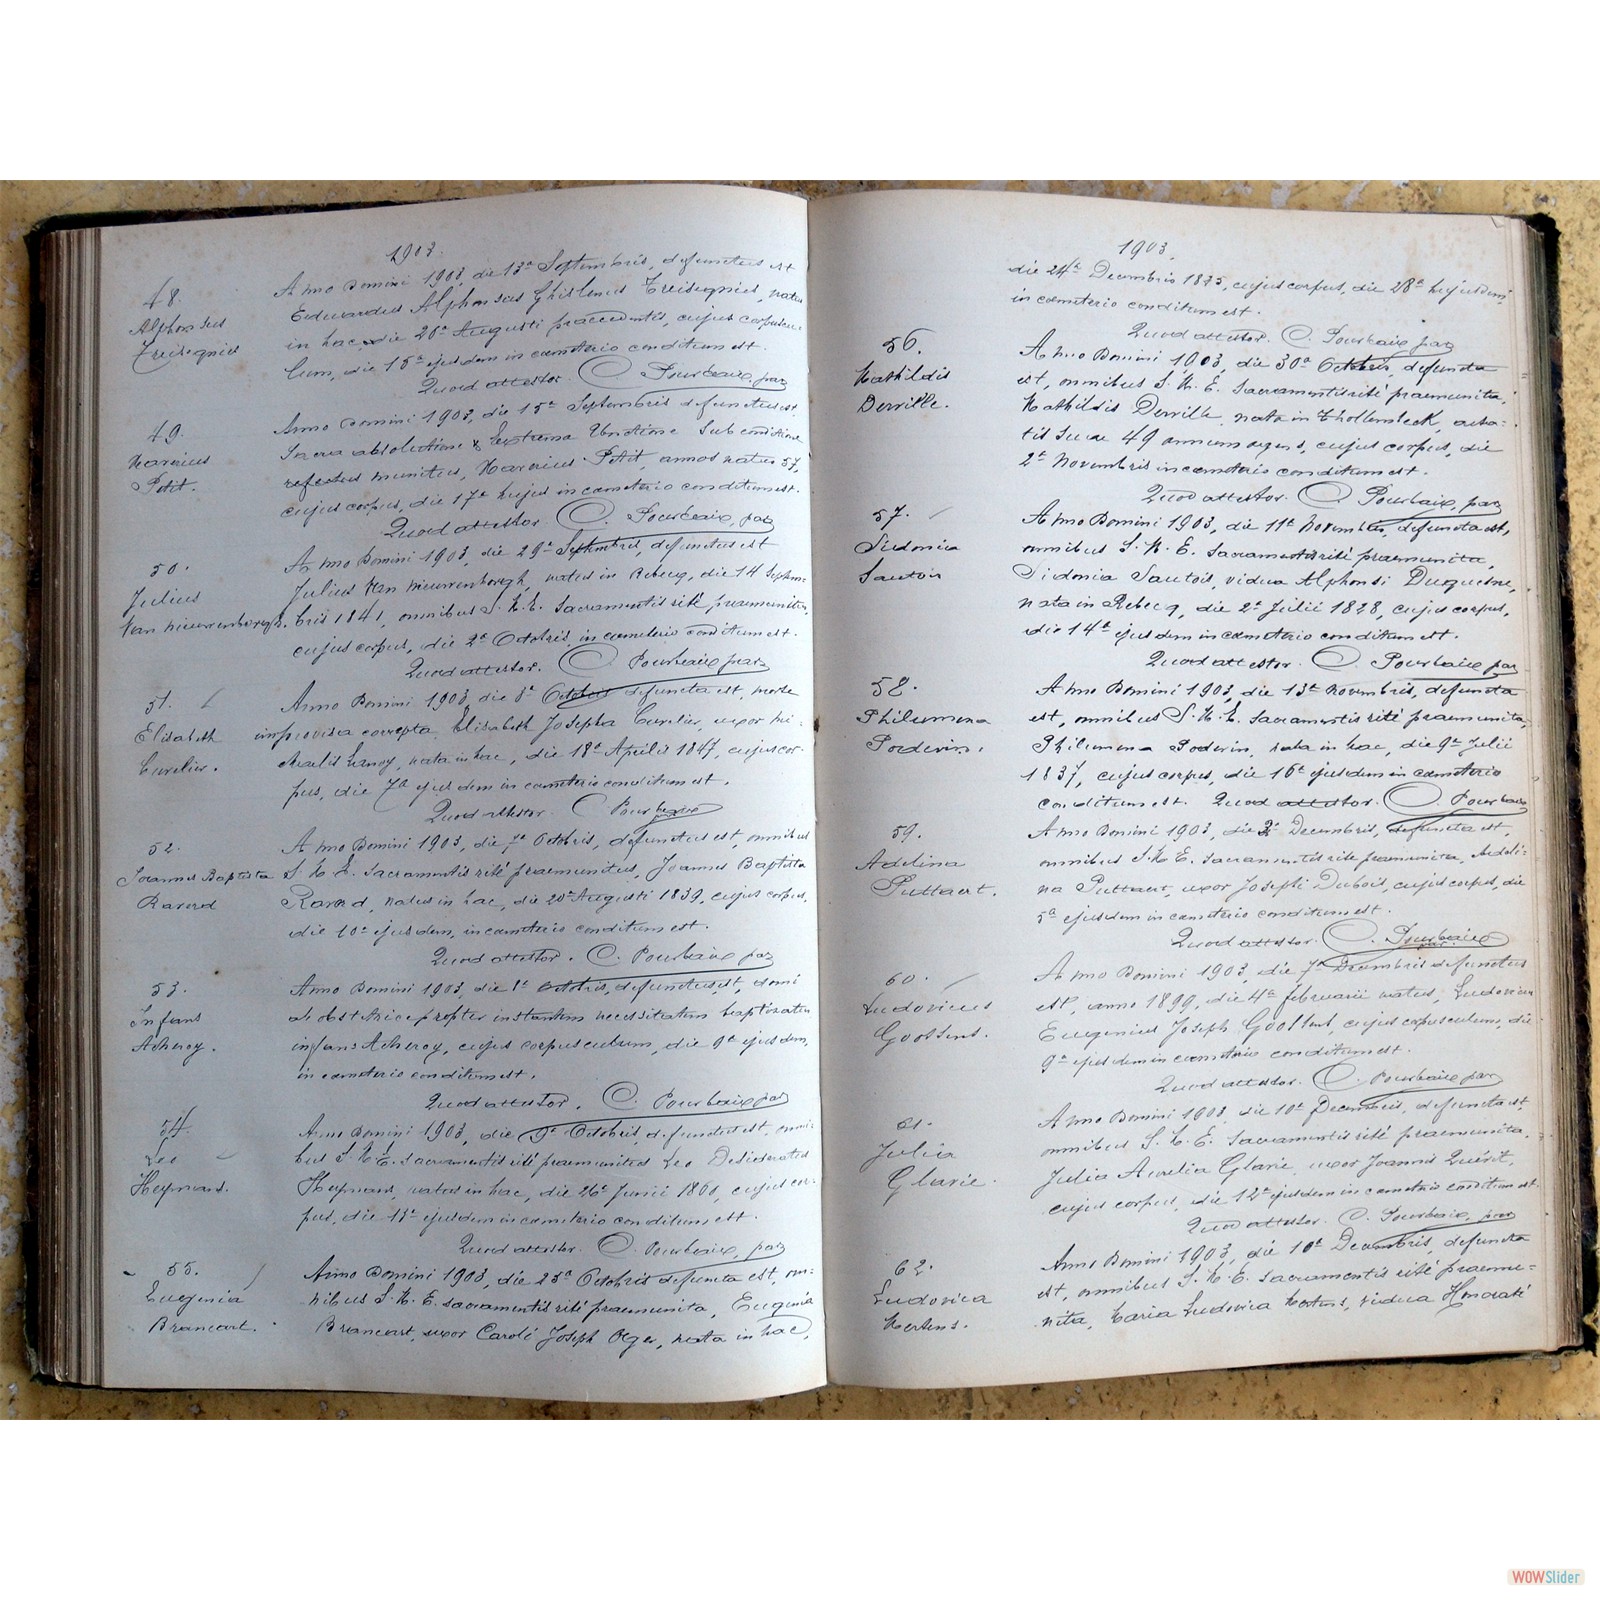 1903.
48.
Alphonsus
Treisegnies
Anno Domini 1903, die 13a Septembris, defunctus est
Eduardus Alphonsus Ghislenus Treisegnies, natus
in hac die 20a Augusti praecedentis, cujus corpuscu
lum, die 15a ejusdem in cameterio conditum est.
Quod attestor. C. Pourbaix, par
49.
Marius
Petit.
Anno Domini 1903, die 15a Septembris defunctus est,
Sacra absolutione & Extrema Unctione sub conditione
refectus munitus, Petit, annos natus 57,
cujus corpus, die 17a hujus in cameterio conditum est.
Quod attestor. C. Pourbaix, par
50.
Julius
Van Nieuwenborgh.
Anno Domini 1903, die 29a Septembris, defunctus est
Julius Van Nieuwenborgh, natus in Rebecq, die 14 Septem-
bris 1841, omnibus S. M. E. Sacramentis rité praemunitus,
cujus corpus, die 2a Octobris, in cameterio conditum est.
Quod attestor. C. Pourbaix par
51.
Elisabeth
Cuvelier.
Anno Domini 1903, die 8a Octobris defuncta est, morte
improvisa correpta, Elisabeth Josepha Cuvelier, uxor Mi-
chaelis Lanoy, nata in hac, die 18a Aprilis 1847, cujus cor-
pus, die ejusdem in cameterio conditum est.
Quod attestor. C. Pourbaix
52.
Joannes Baptista
Ravard
Anno Domini 1903, die 7a Octobris, defunctus est, omnibus
S. M. E. Sacramentis rité praemunitus, Joannes Baptista
Ravard, natus in hac, die 20a Augusti 1839, cujus corpus,
die 10a ejusdem, in cameterio conditum est.
Quod attestor. C. Pourbaix par
53.
Infans
Acheroy.
Anno Domini 1903, die 8a Octobris, defunctus est, domi
ab obstetrice propter instantem necessitatem baptizatus
infans Acheroy, cujus corpusculum, die 9a ejusdem,
in cameterio conditum est.
Quod attestor. C. Pourbaix par
54.
Leo
Heymans.
Anno Domini 1903, die 9a Octobris, defunctus est, omni-
bus S. M. E. Sacramentis rité praemunitus Leo Desideratus
Heymans, natus in hac, die 26a Junii 1860, cujus cor-
pus, die 11a ejusdem in cameterio conditum est.
Quod attestor. C. Pourbaix, par
55.
Eugenia
Brancart.
Anno Domini 1903, die 25a Octobris defuncta est, om-
nibus S. M. E. sacramentis rité praemunita, Eugenia
Brancart, uxor Caroli Joseph Oger, nata in hac,
1903.
die 24a Decembris 1835, cujus corpus, die 28a hujusdem,
in cameterio conditum est.
Quod attestor. C. Pourbaix par
56.
Mathildis
Derville.
Anno Domini 1903, die 30a Octobris, defuncta
est, omnibus S. M. E. Sacramentis rité praemunita,
Mathildis Derville, nata in Thollembeek, aeta-
tis suae 49 annum agens, cujus corpus, die
2a Novembris in cameterio conditum est.
Quod attestor. C. Pourbaix, par
57.
Sidonia
Sautois
Anno Domini 1903, die 11a Novembris, defuncta est,
omnibus S. M. E. Sacramentis rité praemunita,
Sidonia Sautois, vidua Alphonsi Duquesne,
nata in Rebecq, die 2a Julii 1828, cujus corpus,
die 14a ejusdem in cameterio conditum est.
Quod attestor. C. Pourbaix par
58.
Philumena
Poderin.
Anno Domini 1903, die 13a Novembris, defuncta
est, omnibus S. M. E. Sacramentis rité praemunita,
Philumena Poderin, nata in hac, die 9a Julii
1837, cujus corpus, die 16a ejusdem in cameterio
conditum est. Quod attestor. C. Pourbaix
59.
Adelina
Puttaert.
Anno Domini 1903, die 2a Decembris, defuncta est,
omnibus S. M. E. Sacramentis rité praemunita, Adeli-
na Puttaert, uxor Josephi Dubois, cujus corpus, die
5a ejusdem in cameterio conditum est.
Quod attestor. C. Pourbaix par
60.
Ludovicus
Goossens.
Anno Domini 1903, die 7a Decembris defunctus
est, anno 1899, die 4a februarii natus, Ludovicus
Eugenius Joseph Goossens, cujus corpusculum, die
9a ejusdem in cameterio conditum est.
Quod attestor. C. Pourbaix par
61.
Julia
Glarie.
Anno Domini 1903, die 10a Decembris, defuncta est,
omnibus S. M. E. Sacramentis rité praemunita,
Julia Aurelia Glarie, uxor Joannis Quérit,
cujus corpus, die 12a ejusdem in cameterio conditum est.
Quod attestor. C. Pourbaix, par
62.
Ludovica
Mertens.
Anno Domini 1903, die 10a Decembris, defuncta
est, omnibus S. M. E. Sacramentis rité praemu-
nita, Maria Ludovica Mertens, vidua Honorati
WOWSlider